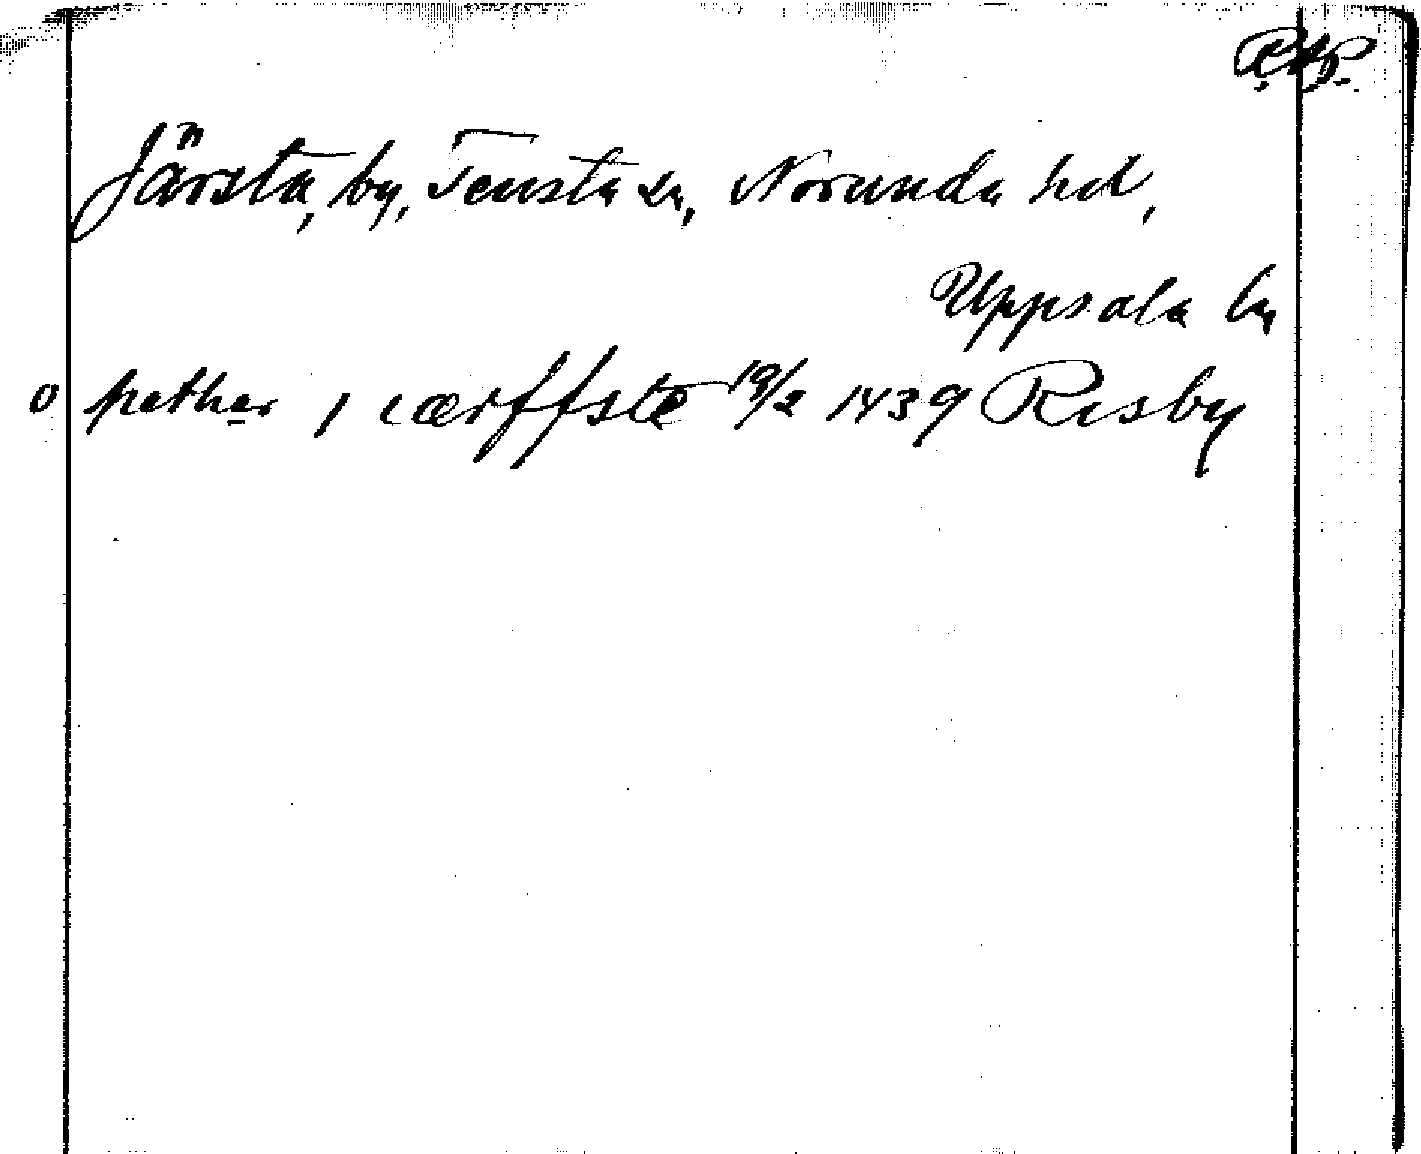 RAP.
Järsta, by, Tensta sn, Norunda hd,
Uppsala län
o pether i iærffste 19/2 1439 Risby